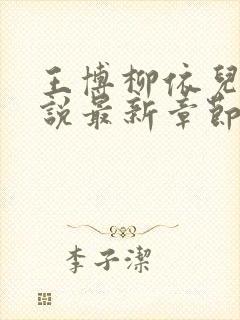 王博柳依兒
說最新章節
李子潔